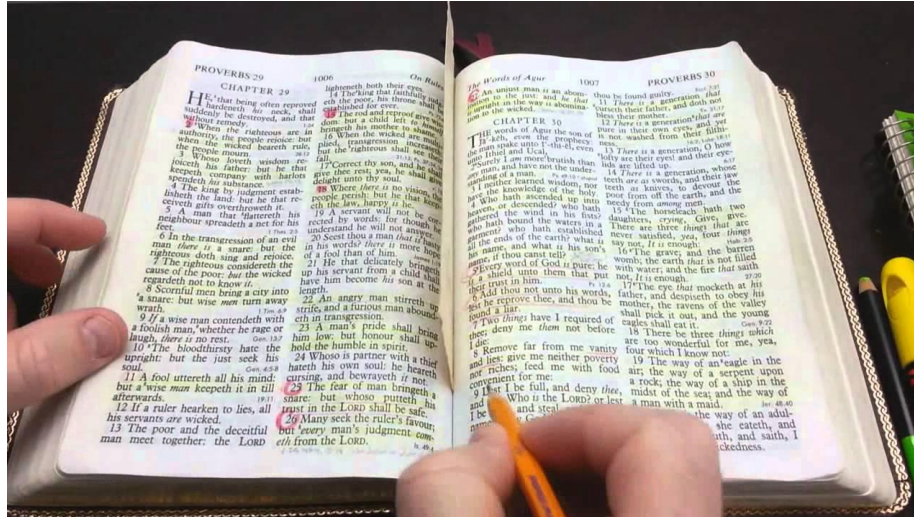 PROVERBS 29
1006
On Rulers
CHAPTER 29
HE, that being often reproved
hardeneth his neck, shall
suddenly be destroyed, and that
without remedy.
2 When the righteous are in
authority, the people rejoice: but
when the wicked beareth rule,
the people mourn.
3 Whoso loveth wisdom re-
joiceth his father: but he that
keepeth company with harlots
spendeth his substance.
4 The king by judgment estab-
lisheth the land: but he that re-
ceiveth gifts overthroweth it.
5 A man that flattereth his
neighbour spreadeth a net for his
feet.
6 In the transgression of an evil
man there is a snare: but the
righteous doth sing and rejoice.
7 The righteous considereth the
cause of the poor: but the wicked
regardeth not to know it.
8 Scornful men bring a city into
a snare: but wise men turn away
wrath.
9 If a wise man contendeth with
a foolish man, whether he rage or
laugh, there is no rest.
10 The bloodthirsty hate the
upright: but the just seek his
soul.
11 A fool uttereth all his mind:
but a wise man keepeth it in till
afterwards.
12 If a ruler hearken to lies, all
his servants are wicked.
13 The poor and the deceitful
man meet together: the LORD
lighteneth both their eyes.
14 The king that faithfully judg-
eth the poor, his throne shall
established for ever.
15 The rod and reproof give wis-
dom: but a child left to
bringeth his mother to shame.
16 When the wicked are multi-
plied, transgression increaseth:
but the righteous shall see their
fall.
17 Correct thy son, and he shall
give thee rest; yea, he shall give
delight unto thy soul.
18 Where there is no vision, the
people perish: but he that keep-
eth the law, happy is he.
19 A servant will not be cor-
rected by words: for though he
understand he will not answer.
20 Seest thou a man that is hasty
in his words? there is more hope
of a fool than of him.
21 He that delicately bringeth
up his servant from a child shall
have him become his son at the
length.
22 An angry man stirreth up
strife, and a furious man abound-
eth in transgression.
23 A man's pride shall bring
him low: but honour shall up-
hold the humble in spirit.
24 Whoso is partner with a thief
hateth his own soul: he heareth
cursing, and bewrayeth it not.
25 The fear of man bringeth a
snare: but whoso putteth his
trust in the LORD shall be safe.
26 Many seek the ruler's favour;
but every man's judgment com-
eth from the LORD.
The Words of Agur
1007
PROVERBS 30
27 An unjust man is an abom-
ination to the just: and he that
is upright in the way is abomina-
tion to the wicked.
CHAPTER 30
THE words of Agur the son of
Jakeh, even the prophecy:
the man spake unto Ithiel, even
unto Ithiel and Ucal,
2 Surely I am more brutish than
any man, and have not the under-
standing of a man.
3 I neither learned wisdom, nor
have the knowledge of the holy.
4 Who hath ascended up into
heaven, or descended? who hath
gathered the wind in his fists?
who hath bound the waters in a
garment? who hath established
all the ends of the earth? what is
his name, and what is his son's
name, if thou canst tell?
5 Every word of God is pure: he
is a shield unto them that put
their trust in him.
6 Add thou not unto his words,
lest he reprove thee, and thou be
found a liar.
7 Two things have I required of
thee; deny me them not before
I die:
8 Remove far from me vanity
and lies: give me neither poverty
nor riches; feed me with food
convenient for me:
9 Lest I be full, and deny thee,
and Who is the LORD? or lest
I be and steal
thou be found guilty.
11 There is a generation that
curseth their father, and doth not
bless their mother.
12 There is a generation that are
pure in their own eyes, and yet
is not washed from their filthi-
ness.
13 There is a generation, O how
lofty are their eyes! and their eye-
lids are lifted up.
14 There is a generation, whose
teeth are as swords, and their jaw
teeth as knives, to devour the
poor from off the earth, and the
needy from among men.
15 The horseleach hath two
daughters, crying, Give, give.
There are three things that are
never satisfied, yea, four things
say not, It is enough:
16 The grave; and the barren
womb; the earth that is not filled
with water; and the fire that saith
not, It is enough.
17 The eye that mocketh at his
father, and despiseth to obey his
mother, the ravens of the valley
shall pick it out, and the young
eagles shall eat it.
18 There be three things which
are too wonderful for me, yea,
four which I know not:
19 The way of an eagle in the
air; the way of a serpent upon
a rock; the way of a ship in the
midst of the sea; and the way of
a man with a maid.
the way of an adul-
she eateth, and
mouth, and saith, I
wickedness.